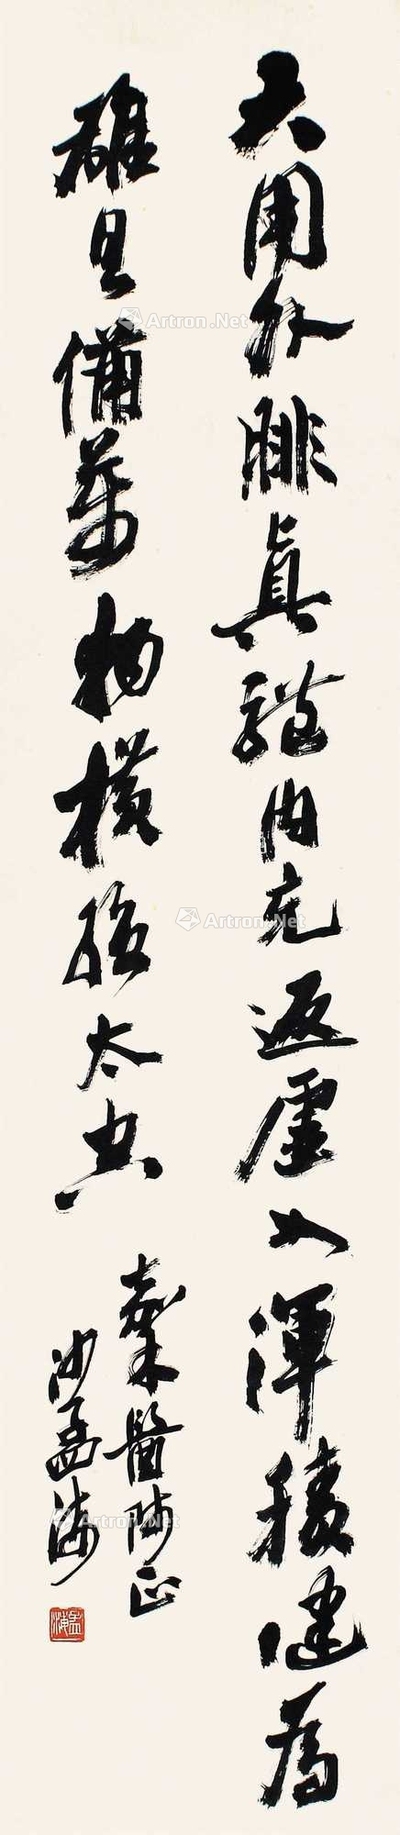 大用外腓真體內充返虛入渾積健為
雄具備萬物橫絕太空
醫師正
沙孟海
孟海
Artron.Net
Artron.Net
Artron.Net
Artron.Net